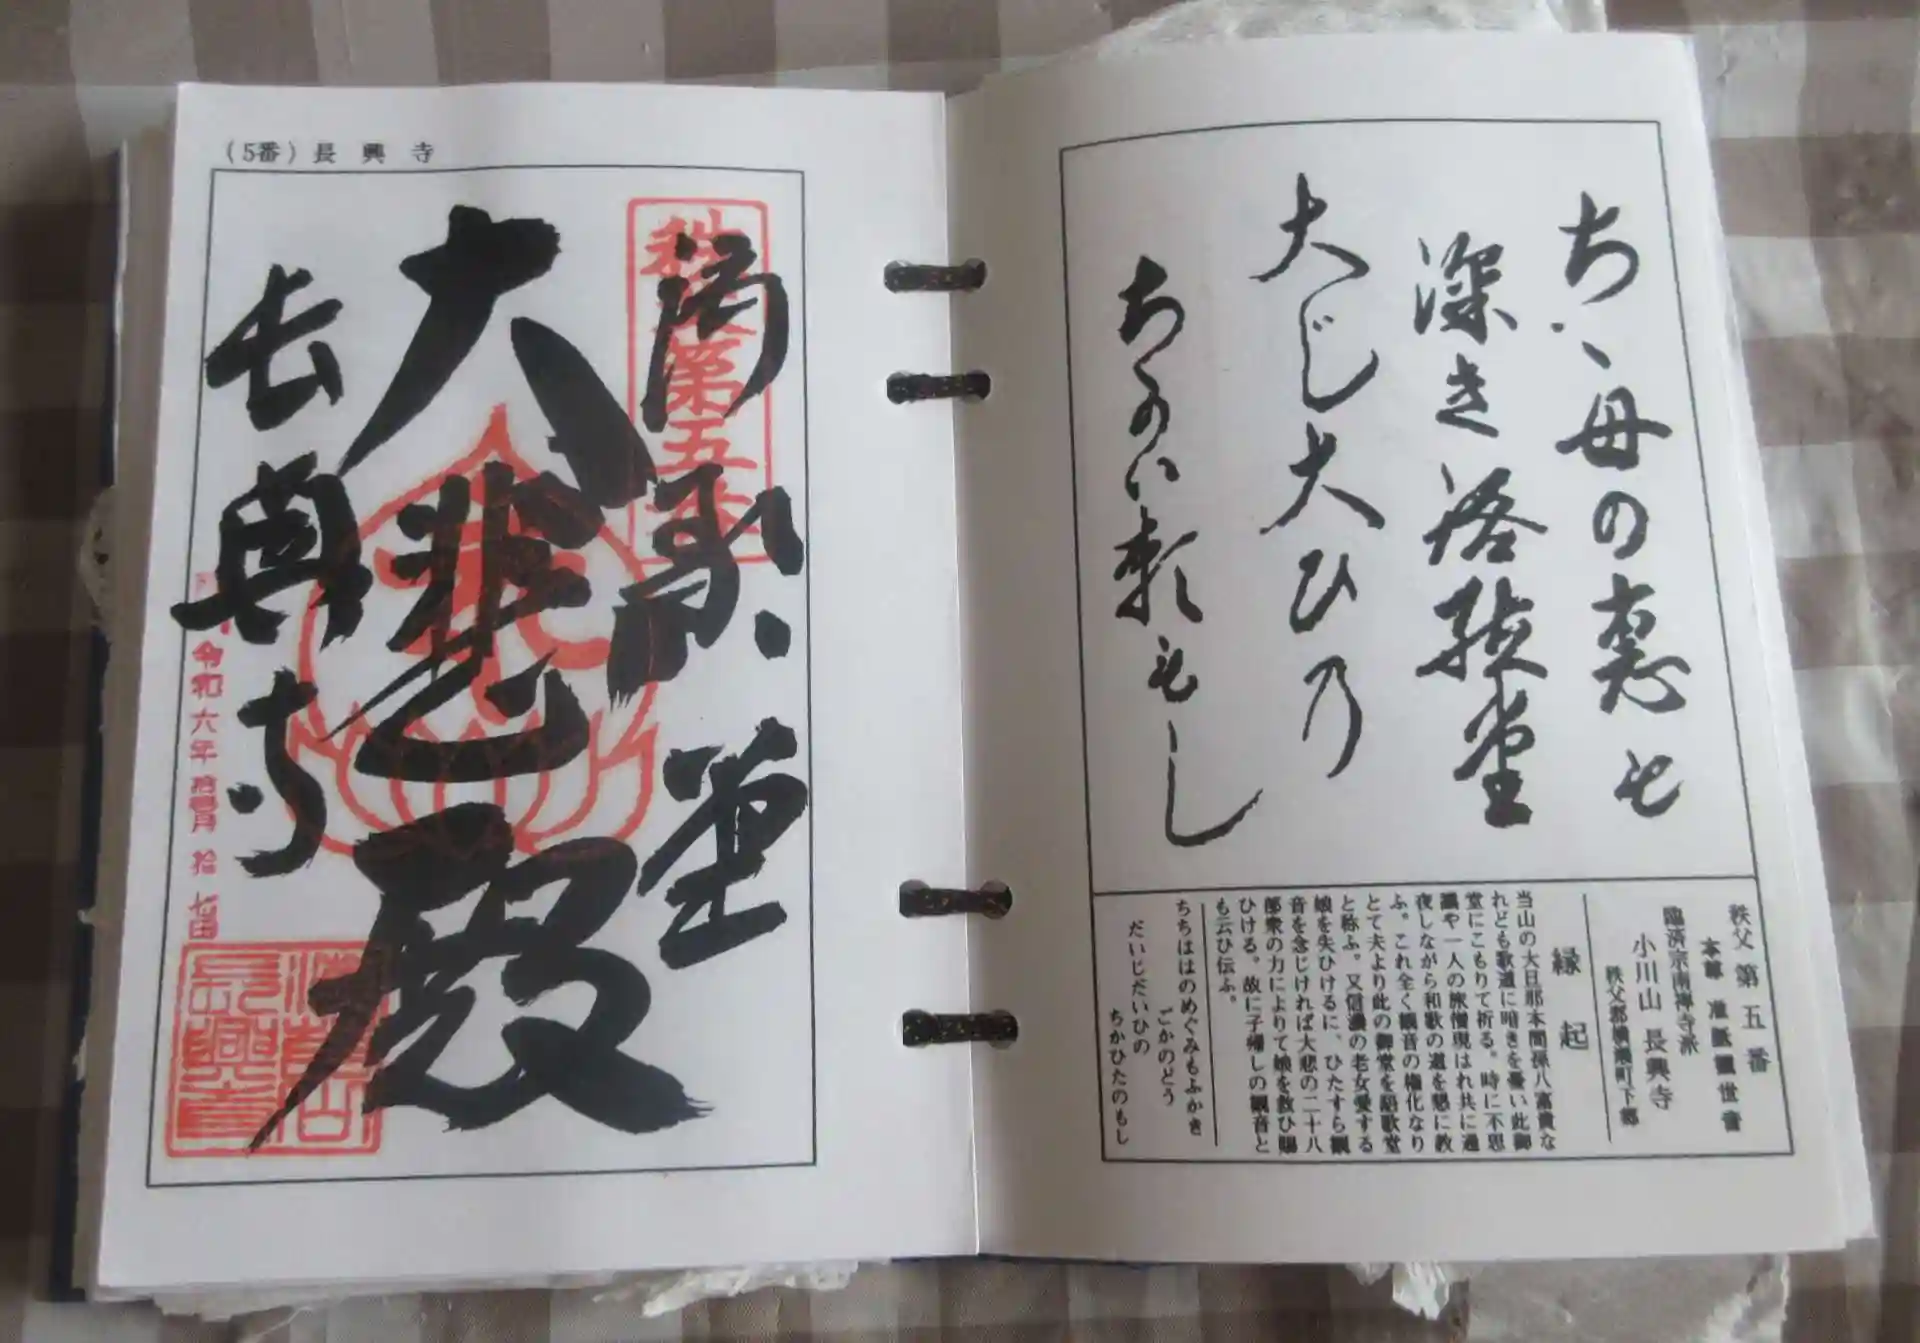 ちゝ母の恵も
深き語歌堂
大じ大ひの
ちかい頼もし
秩父第五番
本尊 准胝観世音
臨済宗南禅寺派
小川山 長興寺
秩父郡横瀬町下郷
縁起
当山の大旦那本間孫八富貴な
れども歌道に暗きを憂い此御
堂にこもりて祈る。時に不思
議や一人の旅僧現はれ共に通
夜しながら和歌の道を懇に教
ふ。これ全く観音の権化なり
とて夫より此の御堂を語歌堂
と称ふ。又信濃の老女愛する
娘を失ひけるに、ひたすら観
音を念じければ大悲の二十八
部衆の力によりて娘を救ひ賜
ひける。故に子帰しの観音と
も云ひ伝ふ。
ちちははのめぐみもふかき
ごかのどう
だいじだいひの
ちかひたのもし
(5番) 長興寺
秩父第五番
語歌堂
大悲殿
長興寺
令和六年拾壱月拾七日
長興寺